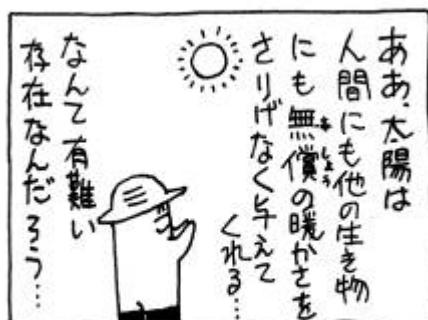 ああ、太陽は
人間にも他の生き物
にも無償の暖かさを
さりげなく与えて
くれる…
なんて有難い
存在なんだろう…